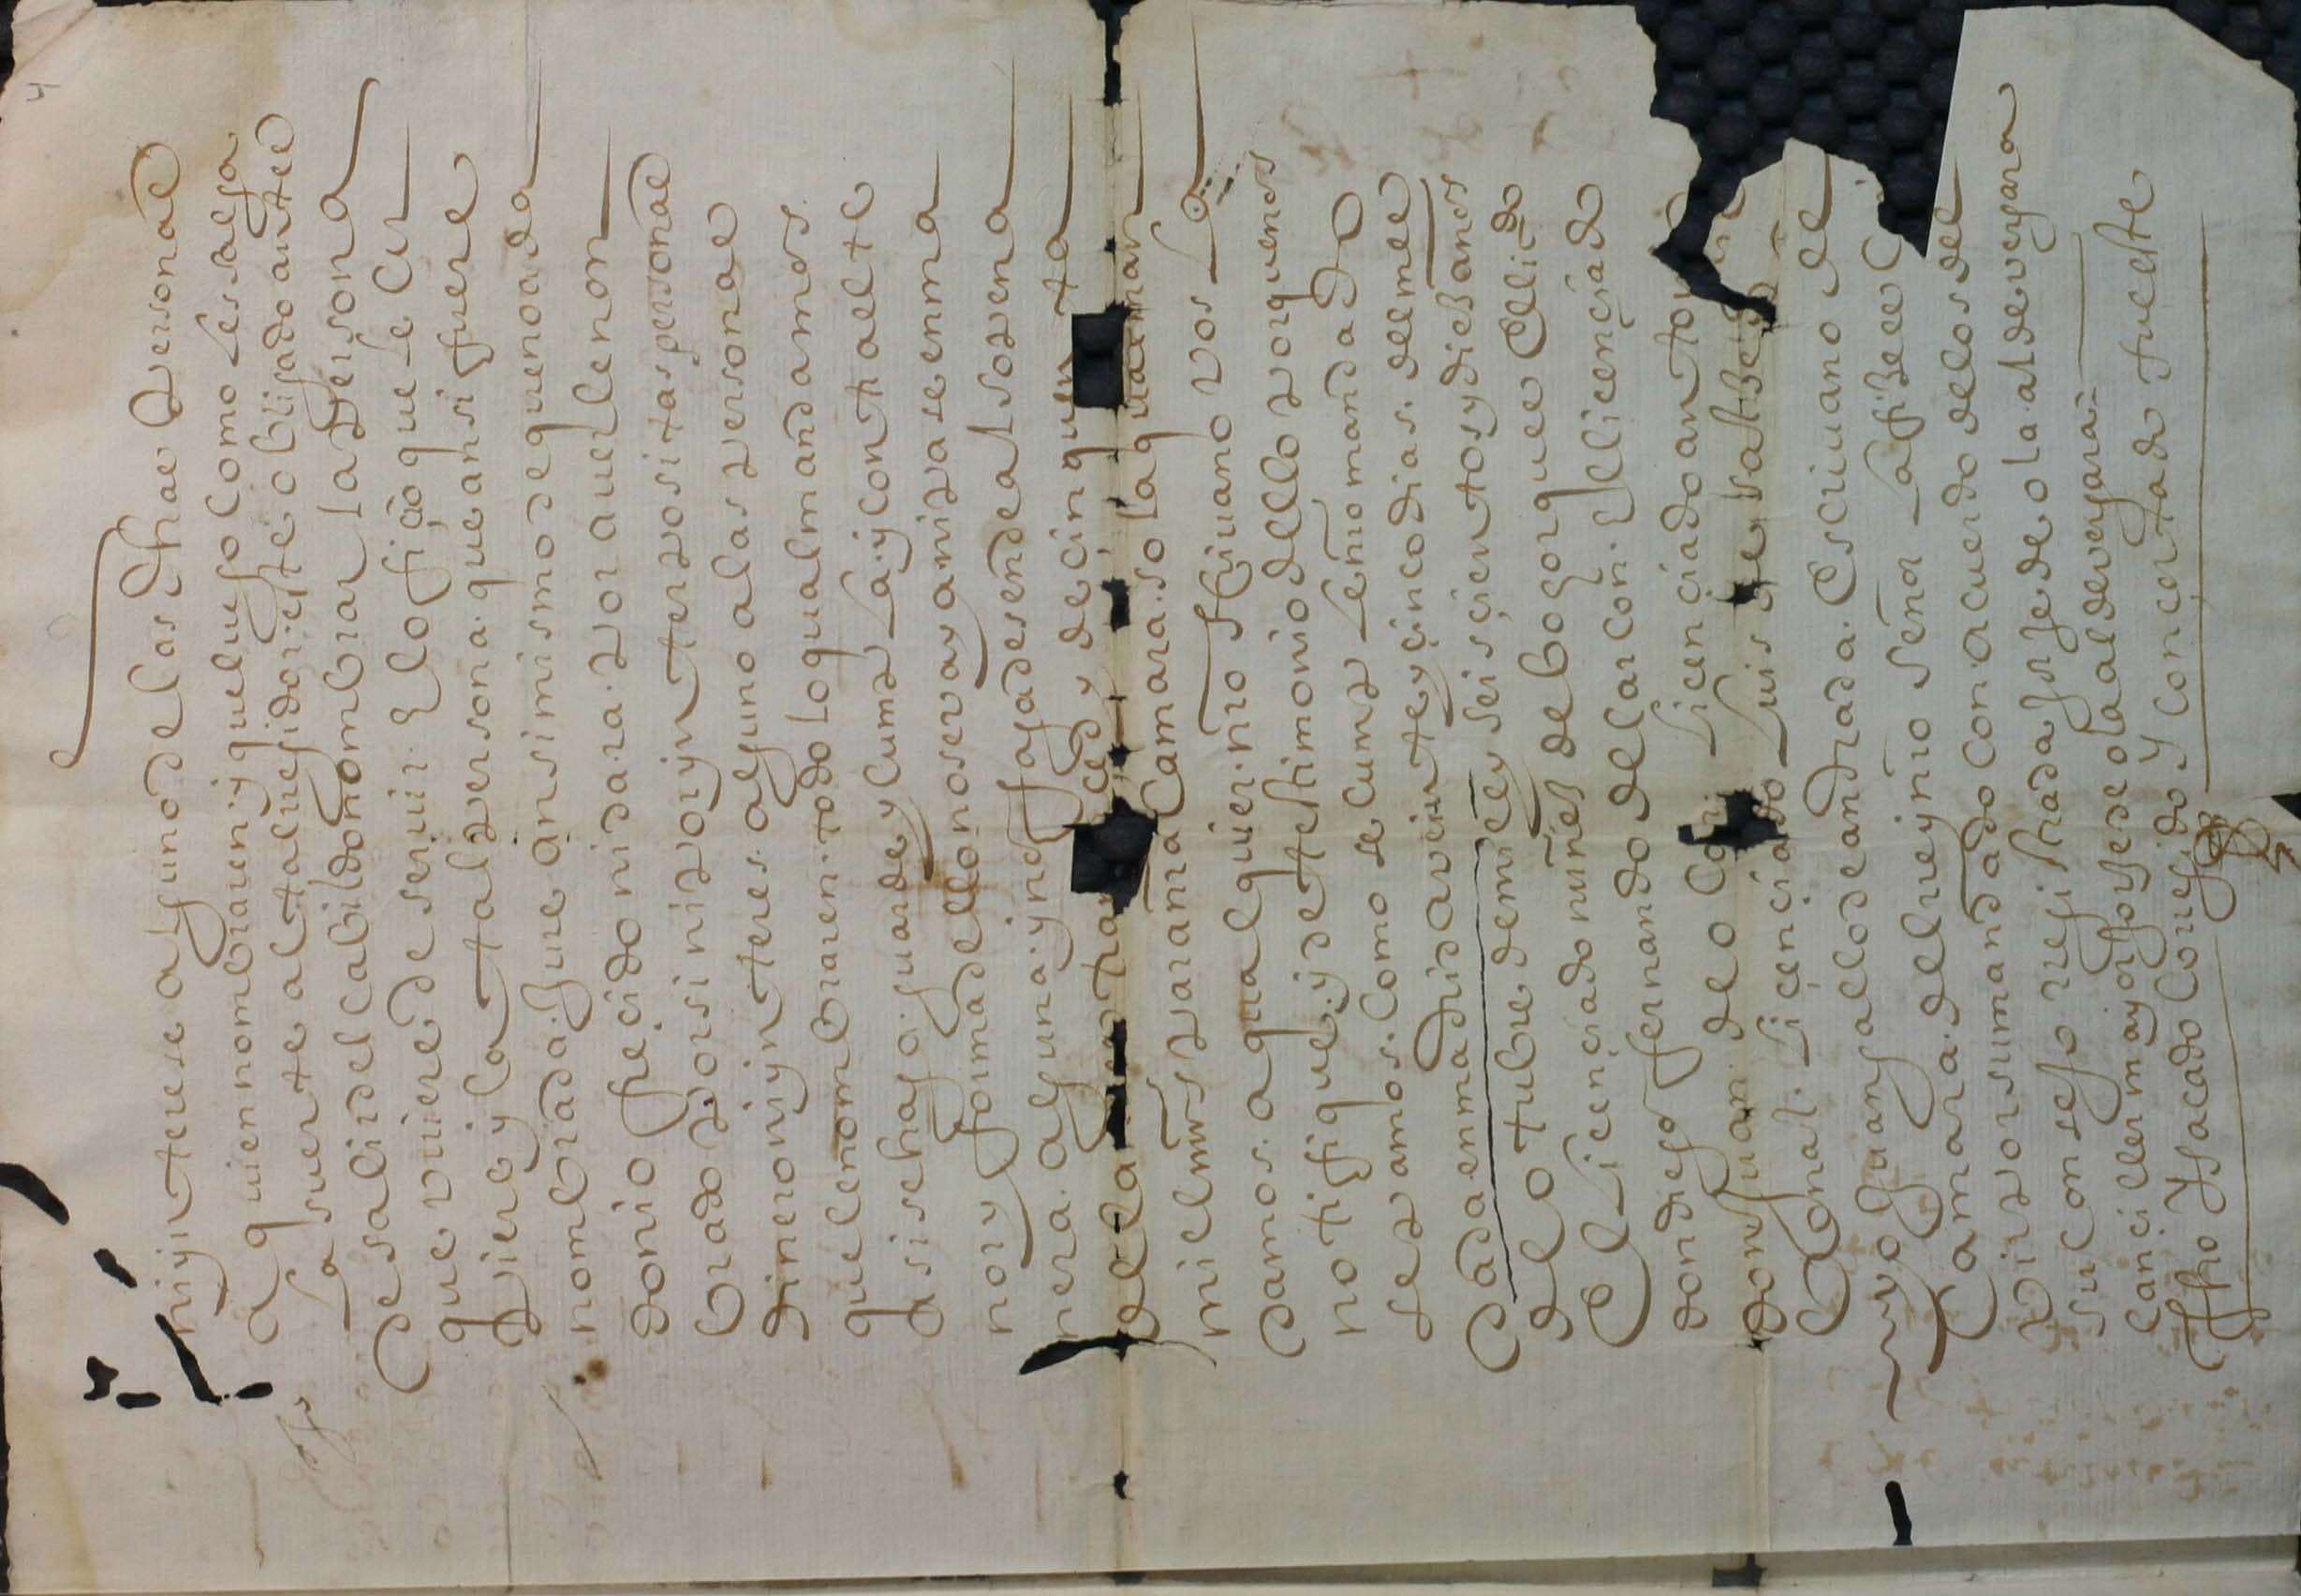 niynterese alguno de las dhas personas
a quien nombraren y quel uso como les salga
la suerte al tal rregidor este obligado ante
de salir del cabildo nombrar la persona
que uviere de servir el ofiçio que le cu
piere y la tal persona que ansi fuere
nombrada jure ansimismo de que no a da
do ni ofreçido ni dara por avelle nom
brado por si ni por ynterpositas personas
dinero ni ynteres alguno a las personas
que le nombraren todo lo qual mandamos
q asi se haga guarde y cumpla y contra el te
nor y forma dello no se vaya ni pase en ma
nera alguna y no fagades ende al so pena
de la nra mrd y de çinquenta
mil mrs para la nra camara so la qual man
damos a qualquier nro escrivano vos la
notifique y de testimonio dello porque nos
sepamos como se cumple nro mandado
dada en madrid a veinte y çinco dias del mes
de otubre de mil y seisçientos y diez años
el liçençiado nuñes de bogorques el liçdo
el liçençiado don fernando de larcon el liçençiado
don diego
don juan de o liçençiado
liçençiado luis de salzedo
yo juan gallo de andrada escrivano de
camara del rrey nro señor la fize escr
vir por su mandado con acuerdo de los del
su consejo rregistrada jorje de olaal de vergara
cançiller mayor jorje de olaal de vergara
fho y sacado corregido y conçertado fue este